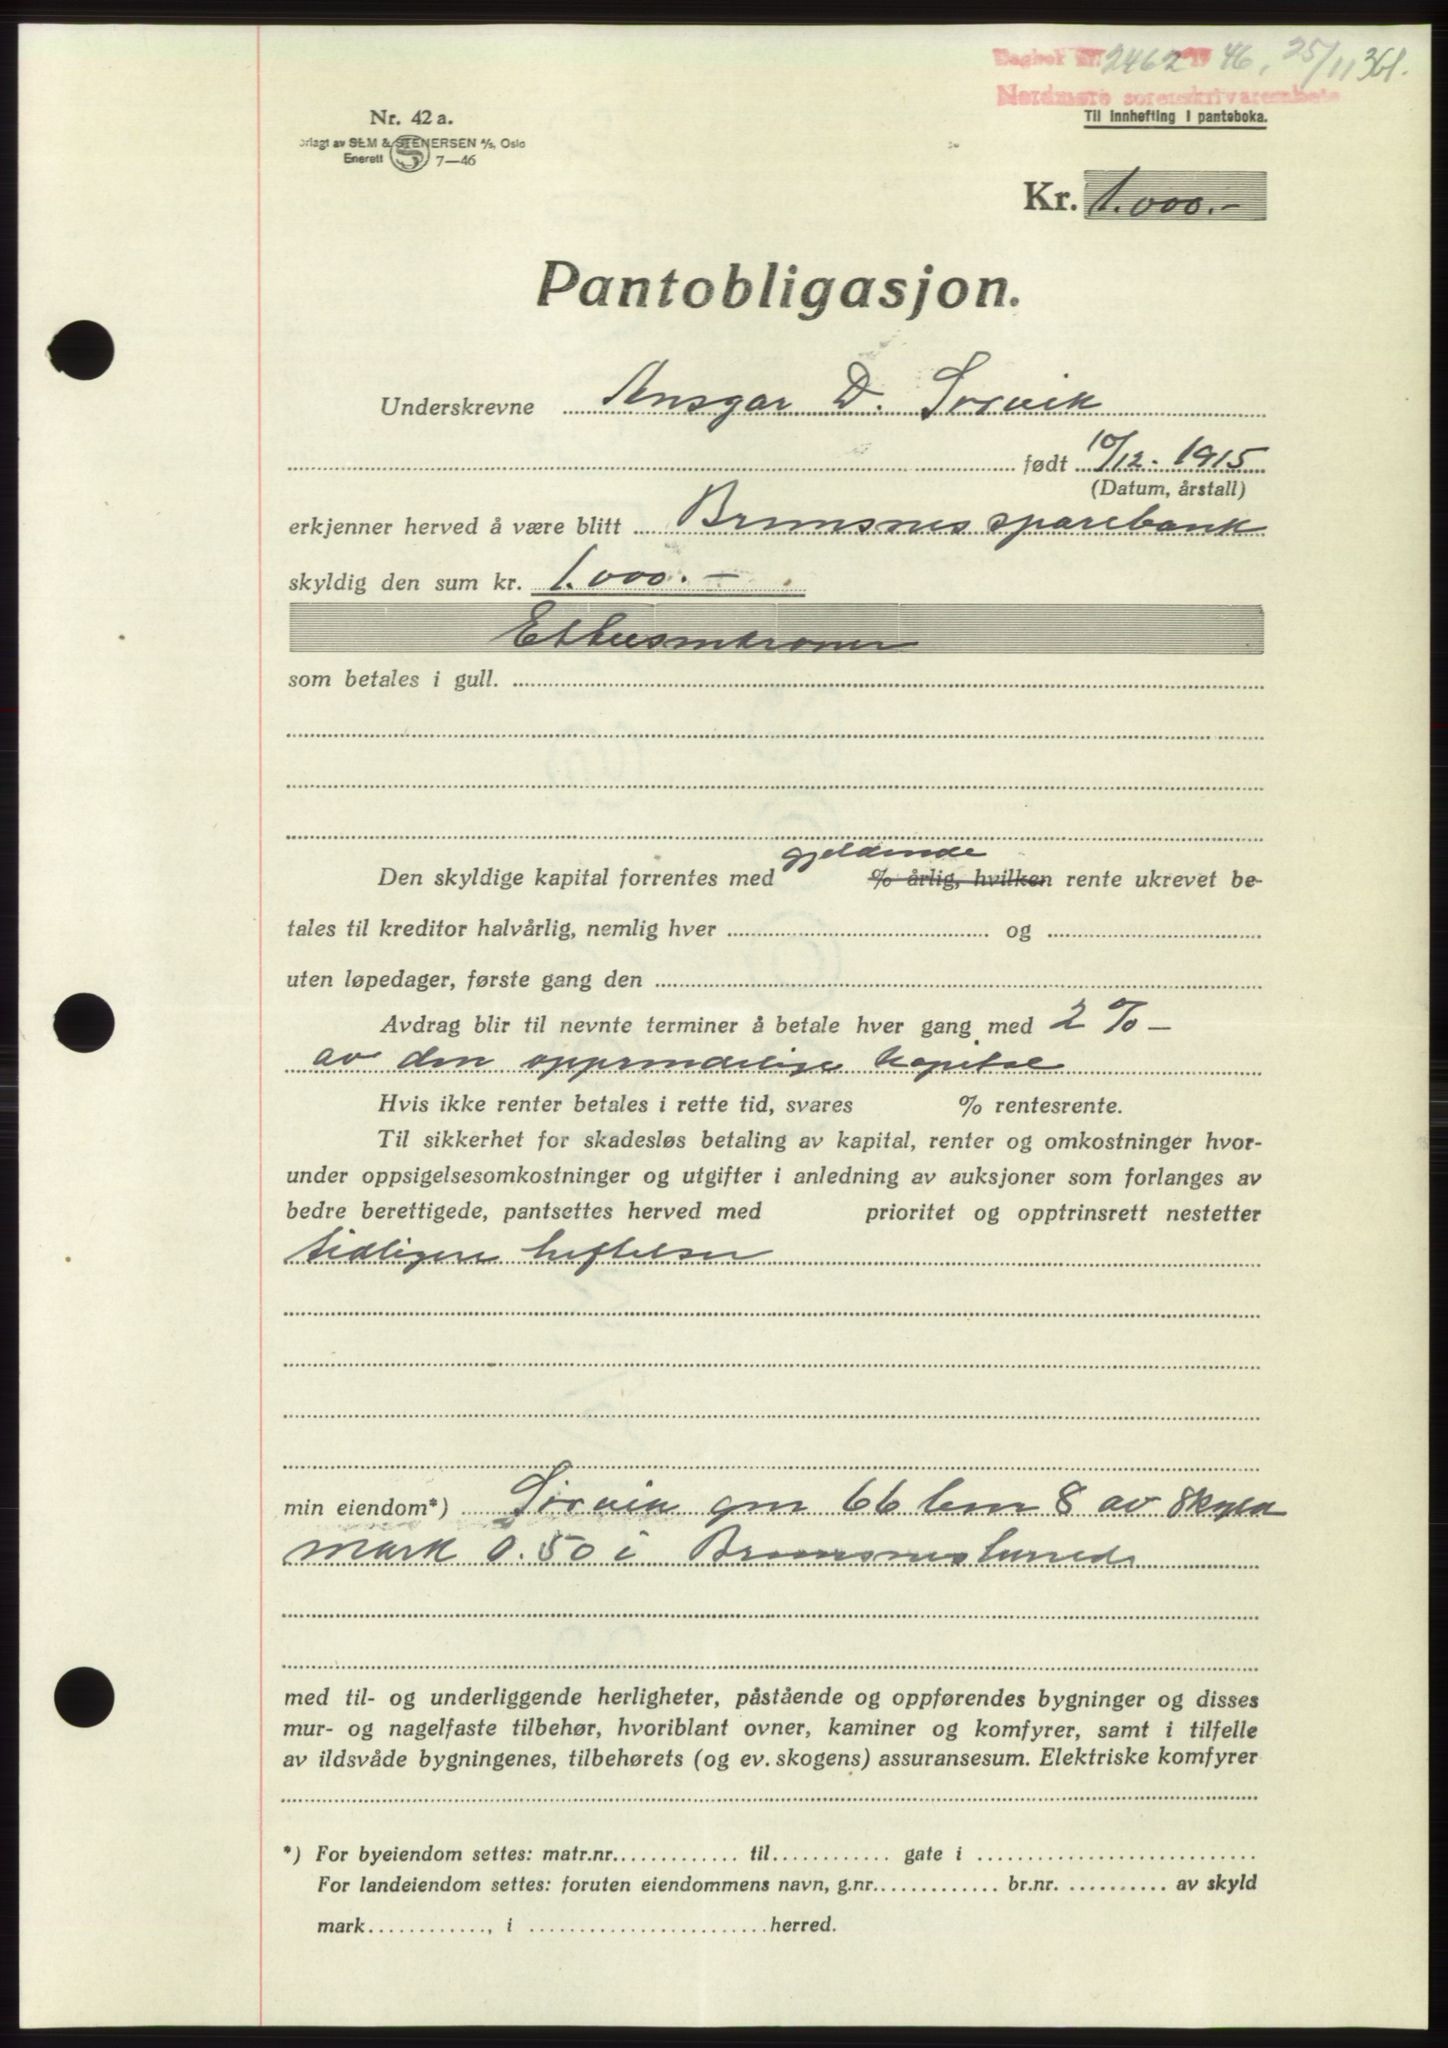 Dagbok nr. 2462 19 46, 25/11 361.
Nordmøre sorenskrivarembete
Til innhefting i panteboka.
Nr. 42 a.
orlagt av SEM & STENERSEN A/S, Oslo
Enerett S 7—46
Kr. 1.000.-
Pantobligasjon.
Underskrevne Ansgar D. Sørvik
født 10/12. 1915
(Datum, årstall)
erkjenner herved å være blitt Bremsnes sparebank
skyldig den sum kr. 1.000.-
Ettusenkroner
som betales i gull.
gjeldende
Den skyldige kapital forrentes med % årlig, hvilken rente ukrevet be-
tales til kreditor halvårlig, nemlig hver og
uten løpedager, første gang den
Avdrag blir til nevnte terminer å betale hver gang med 2 % —
av den opprindelige kapital
Hvis ikke renter betales i rette tid, svares % rentesrente.
Til sikkerhet for skadesløs betaling av kapital, renter og omkostninger hvor-
under oppsigelsesomkostninger og utgifter i anledning av auksjoner som forlanges av
bedre berettigede, pantsettes herved med prioritet og opptrinsrett nestetter
tidligere heftelser
min eiendom*) Sørvik gnr 66 bnr 8 av skyld
mark 0.50 i Bremsnes herred
med til- og underliggende herligheter, påstående og oppførendes bygninger og disses
mur- og nagelfaste tilbehør, hvoriblant ovner, kaminer og komfyrer, samt i tilfelle
av ildsvåde bygningenes, tilbehørets (og ev. skogens) assuransesum. Elektriske komfyrer
*) For byeiendom settes: matr.nr. til gate i
For landeiendom settes: foruten eiendommens navn, g.nr. br.nr. av skyld
mark , i herred.